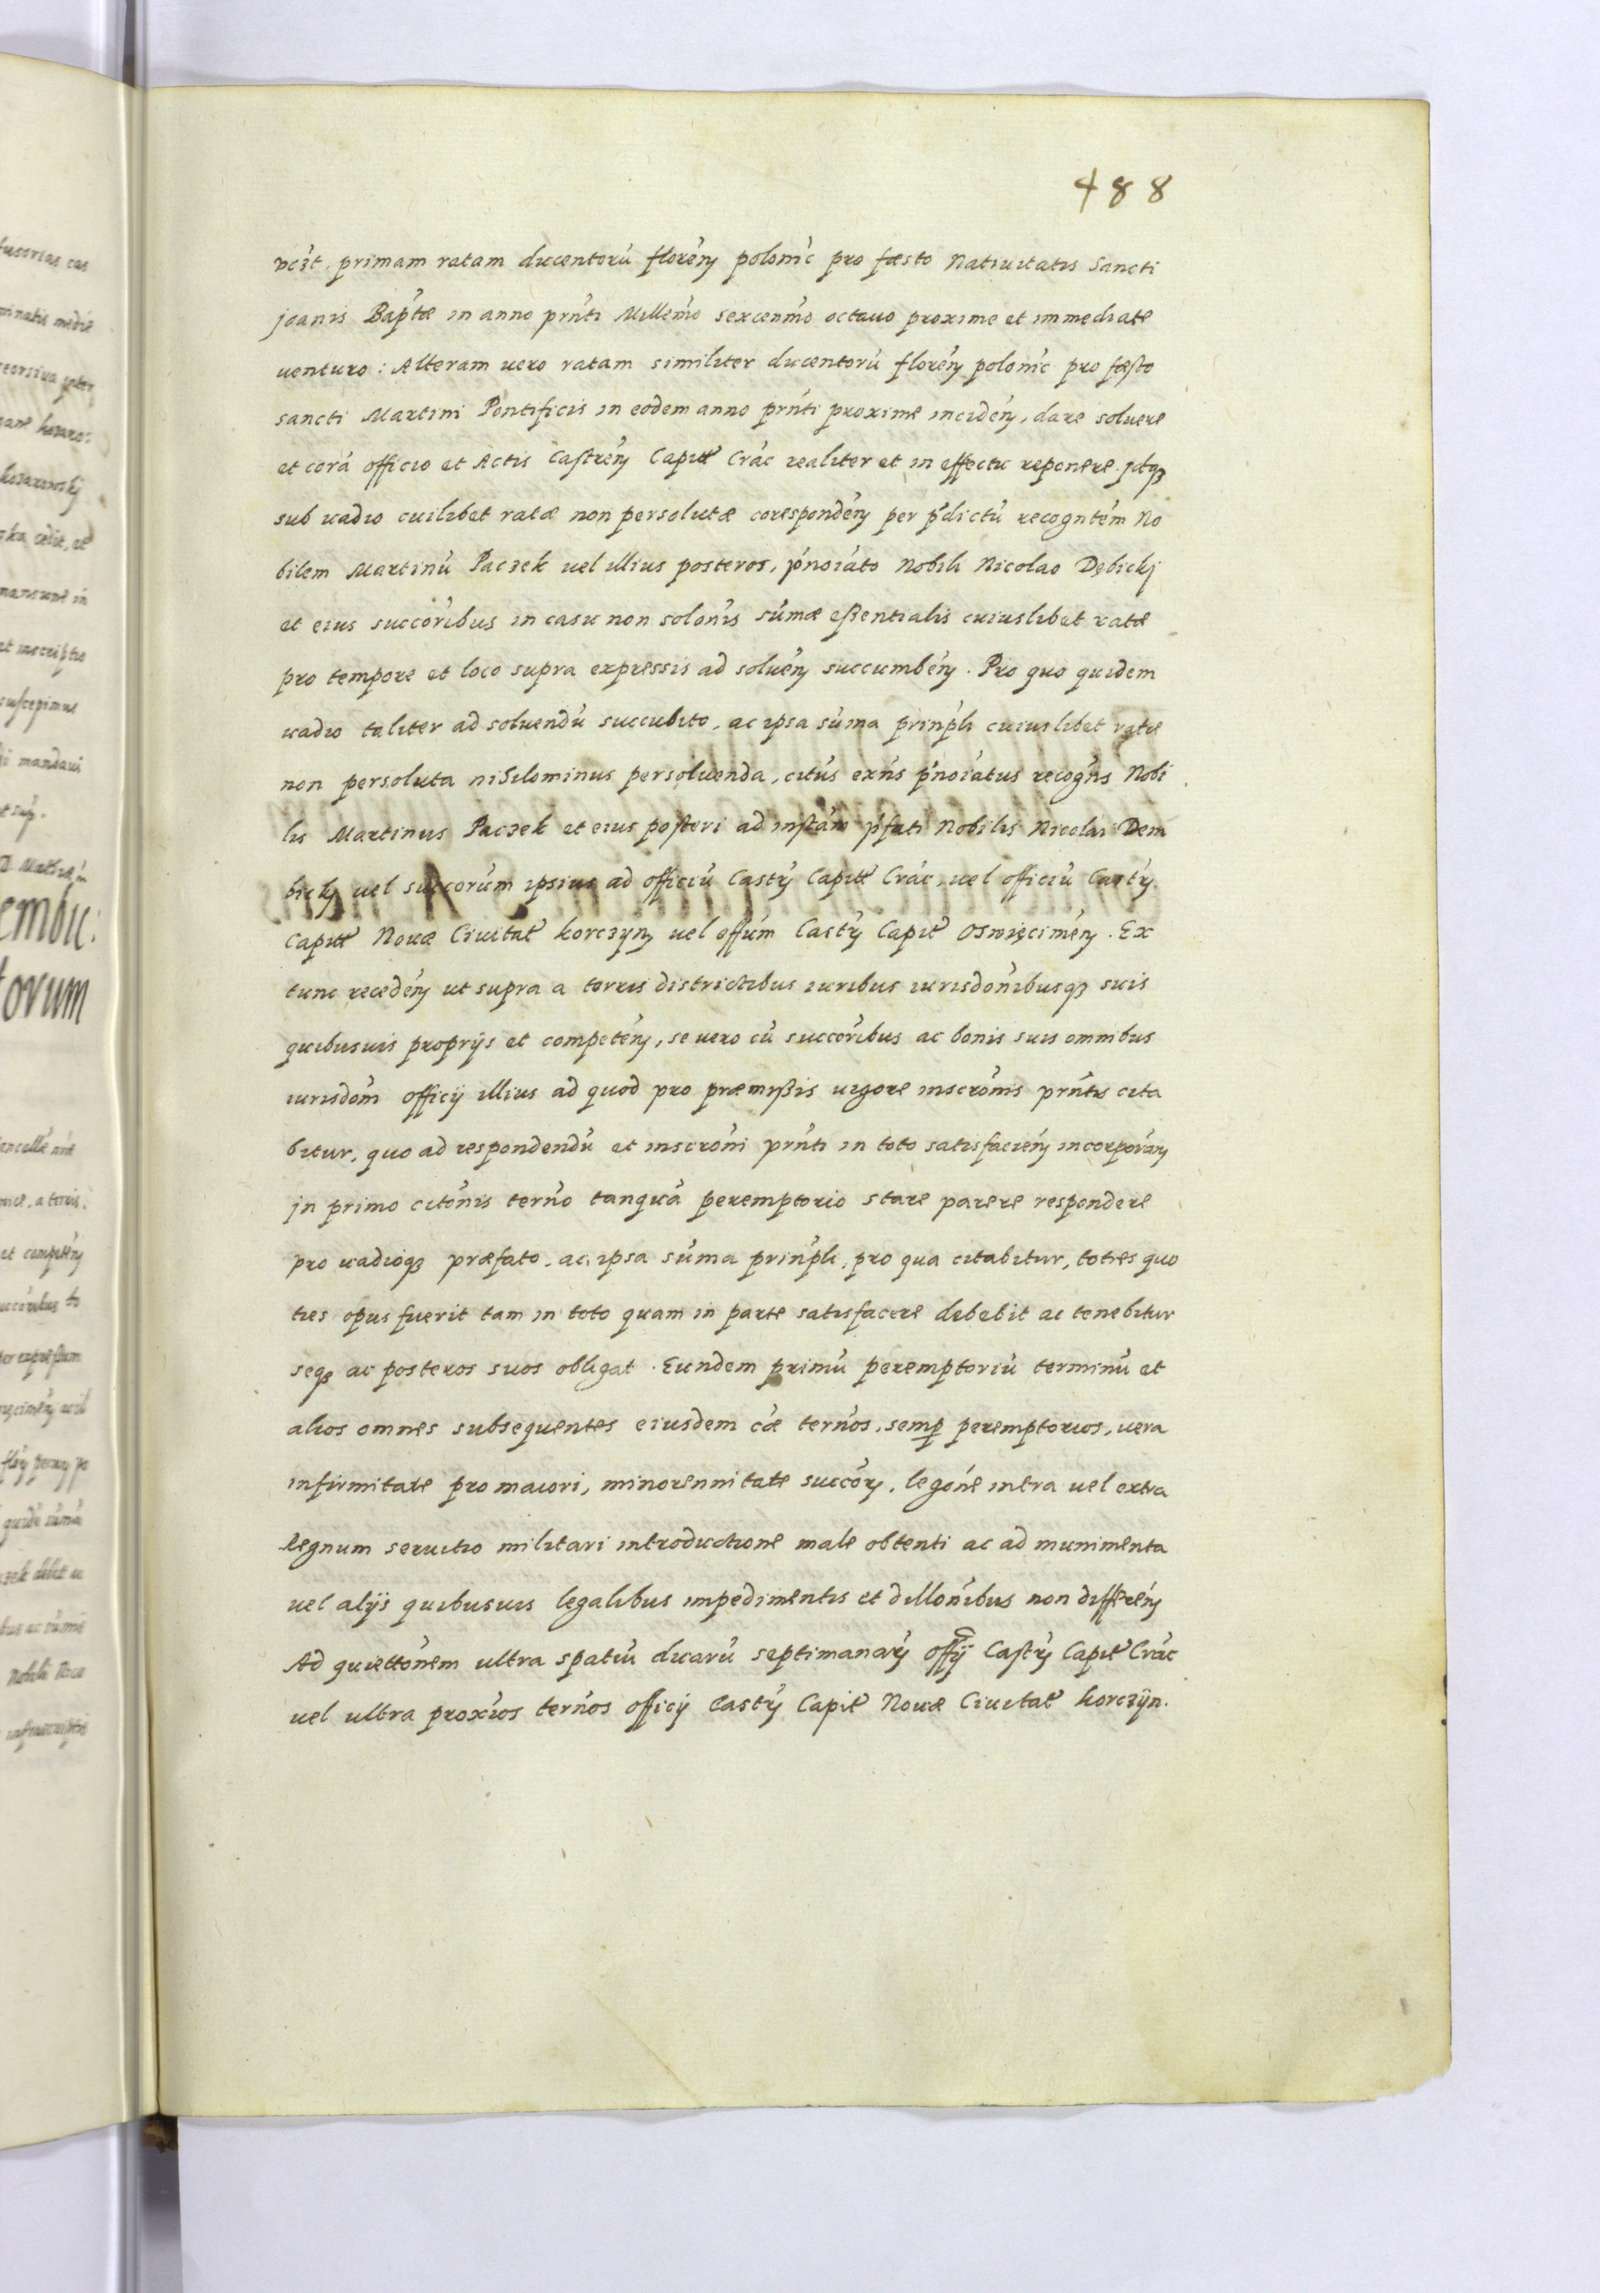 488
vczt. primam ratam ducentorũ florẽn polonic̃ pro fæsto Natiuitatis Sancti
joanis Bap̃tæ in anno prñti Millem̃o sexcenm̃o octauo proxime et immediate
uenturo: Alteram uero ratam similiter ducentorũ florẽn polonic̃ pro fæsto
sancti Martini Pontificis in eodem anno prñti proxime incidẽn, dare soluere
et corã officio et Actis Castrẽn Capitt Crãc realiter et in effectu reponere. jdq3
sub vadio cuilibet ratæ non persolutæ corespondẽn per p̃dictũ recogntẽm No
bilem Martinũ Paczek uel illius posteros, p̃noĩato Nobili Nicolao Dębickj
et eius succõribus in casu non solõnis sũmæ essentialis cuiuslibet ratæ
pro tempore et loco supra expressis ad soluẽn succumbẽn. Pro quo quidem
vadio taliter ad soluendũ succubito, ac ipsa sũma prinp̃li cuiuslibet ratæ
non persoluta nihilominus persoluenda, citũs exñs p̃noĩatus recogñs Nobi
lis Martinus Paczek et eius posteri ad instãm p̃fati Nobilis Nicolai Dem
bickj uel succorũm ipsius ad officiũ Castrẽn Capitt Crãc, uel officiũ Castrẽn
Capitt Nouæ Ciuitat̃ korczyn uel offũm Castrẽn Capit̃ Oswięcimẽn. Ex
tunc recedẽn ut supra a terris districtibus iuribus iurisdõnibusq3 suis
quibusuis proprijs et competẽn, se uero cũ succõribus ac bonis suis omnibus
iurisdõni officij illius ad quod pro præmissis uigore inscrõnis prñtis cita
bitur, quo ad respondendũ et inscrõni prñti in toto satisfaciẽn incorporãn
jn primo citõnis terñno tanquã peremptorio stare parere respondere
pro vadioq3 præfato, ac ipsa sũma prinp̃li, pro qua citabitur, toties quo
ties opus fuerit tam in toto quam in parte satisfacere debebit ac tenebitur
seq3 ac posteros suos obligat. Eundem primũ peremptoriũ terminũ et
alios omnes subsequentes eiusdem cæ̃ terños, semp̱ peremptorios, uera
infirmitate pro maiori, minorennitate succõr, legõne intra uel extra
Regnum seruitio militari introductione male obtenti ac ad munimenta
uel alijs quibusuis legalibus impedimentis et dillõnibus non differẽn
Ad quiettõnem ultra spatiũ duarũ septimanarũ offij̃ Castrẽn Capit̃ Crãc
uel ultra proxĩos terños officij Castrẽn Capit̃ Nouæ Ciuitat̃ korczyn.